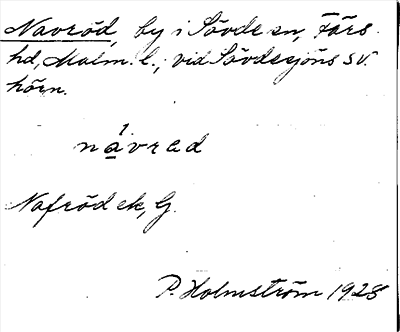 Navröd, by i Sövde sn, Färs
hd, Malm. l., vid Sövdesjöns SV.
hörn.
návrad
Nafröd ek, G.
P. Holmström 1928